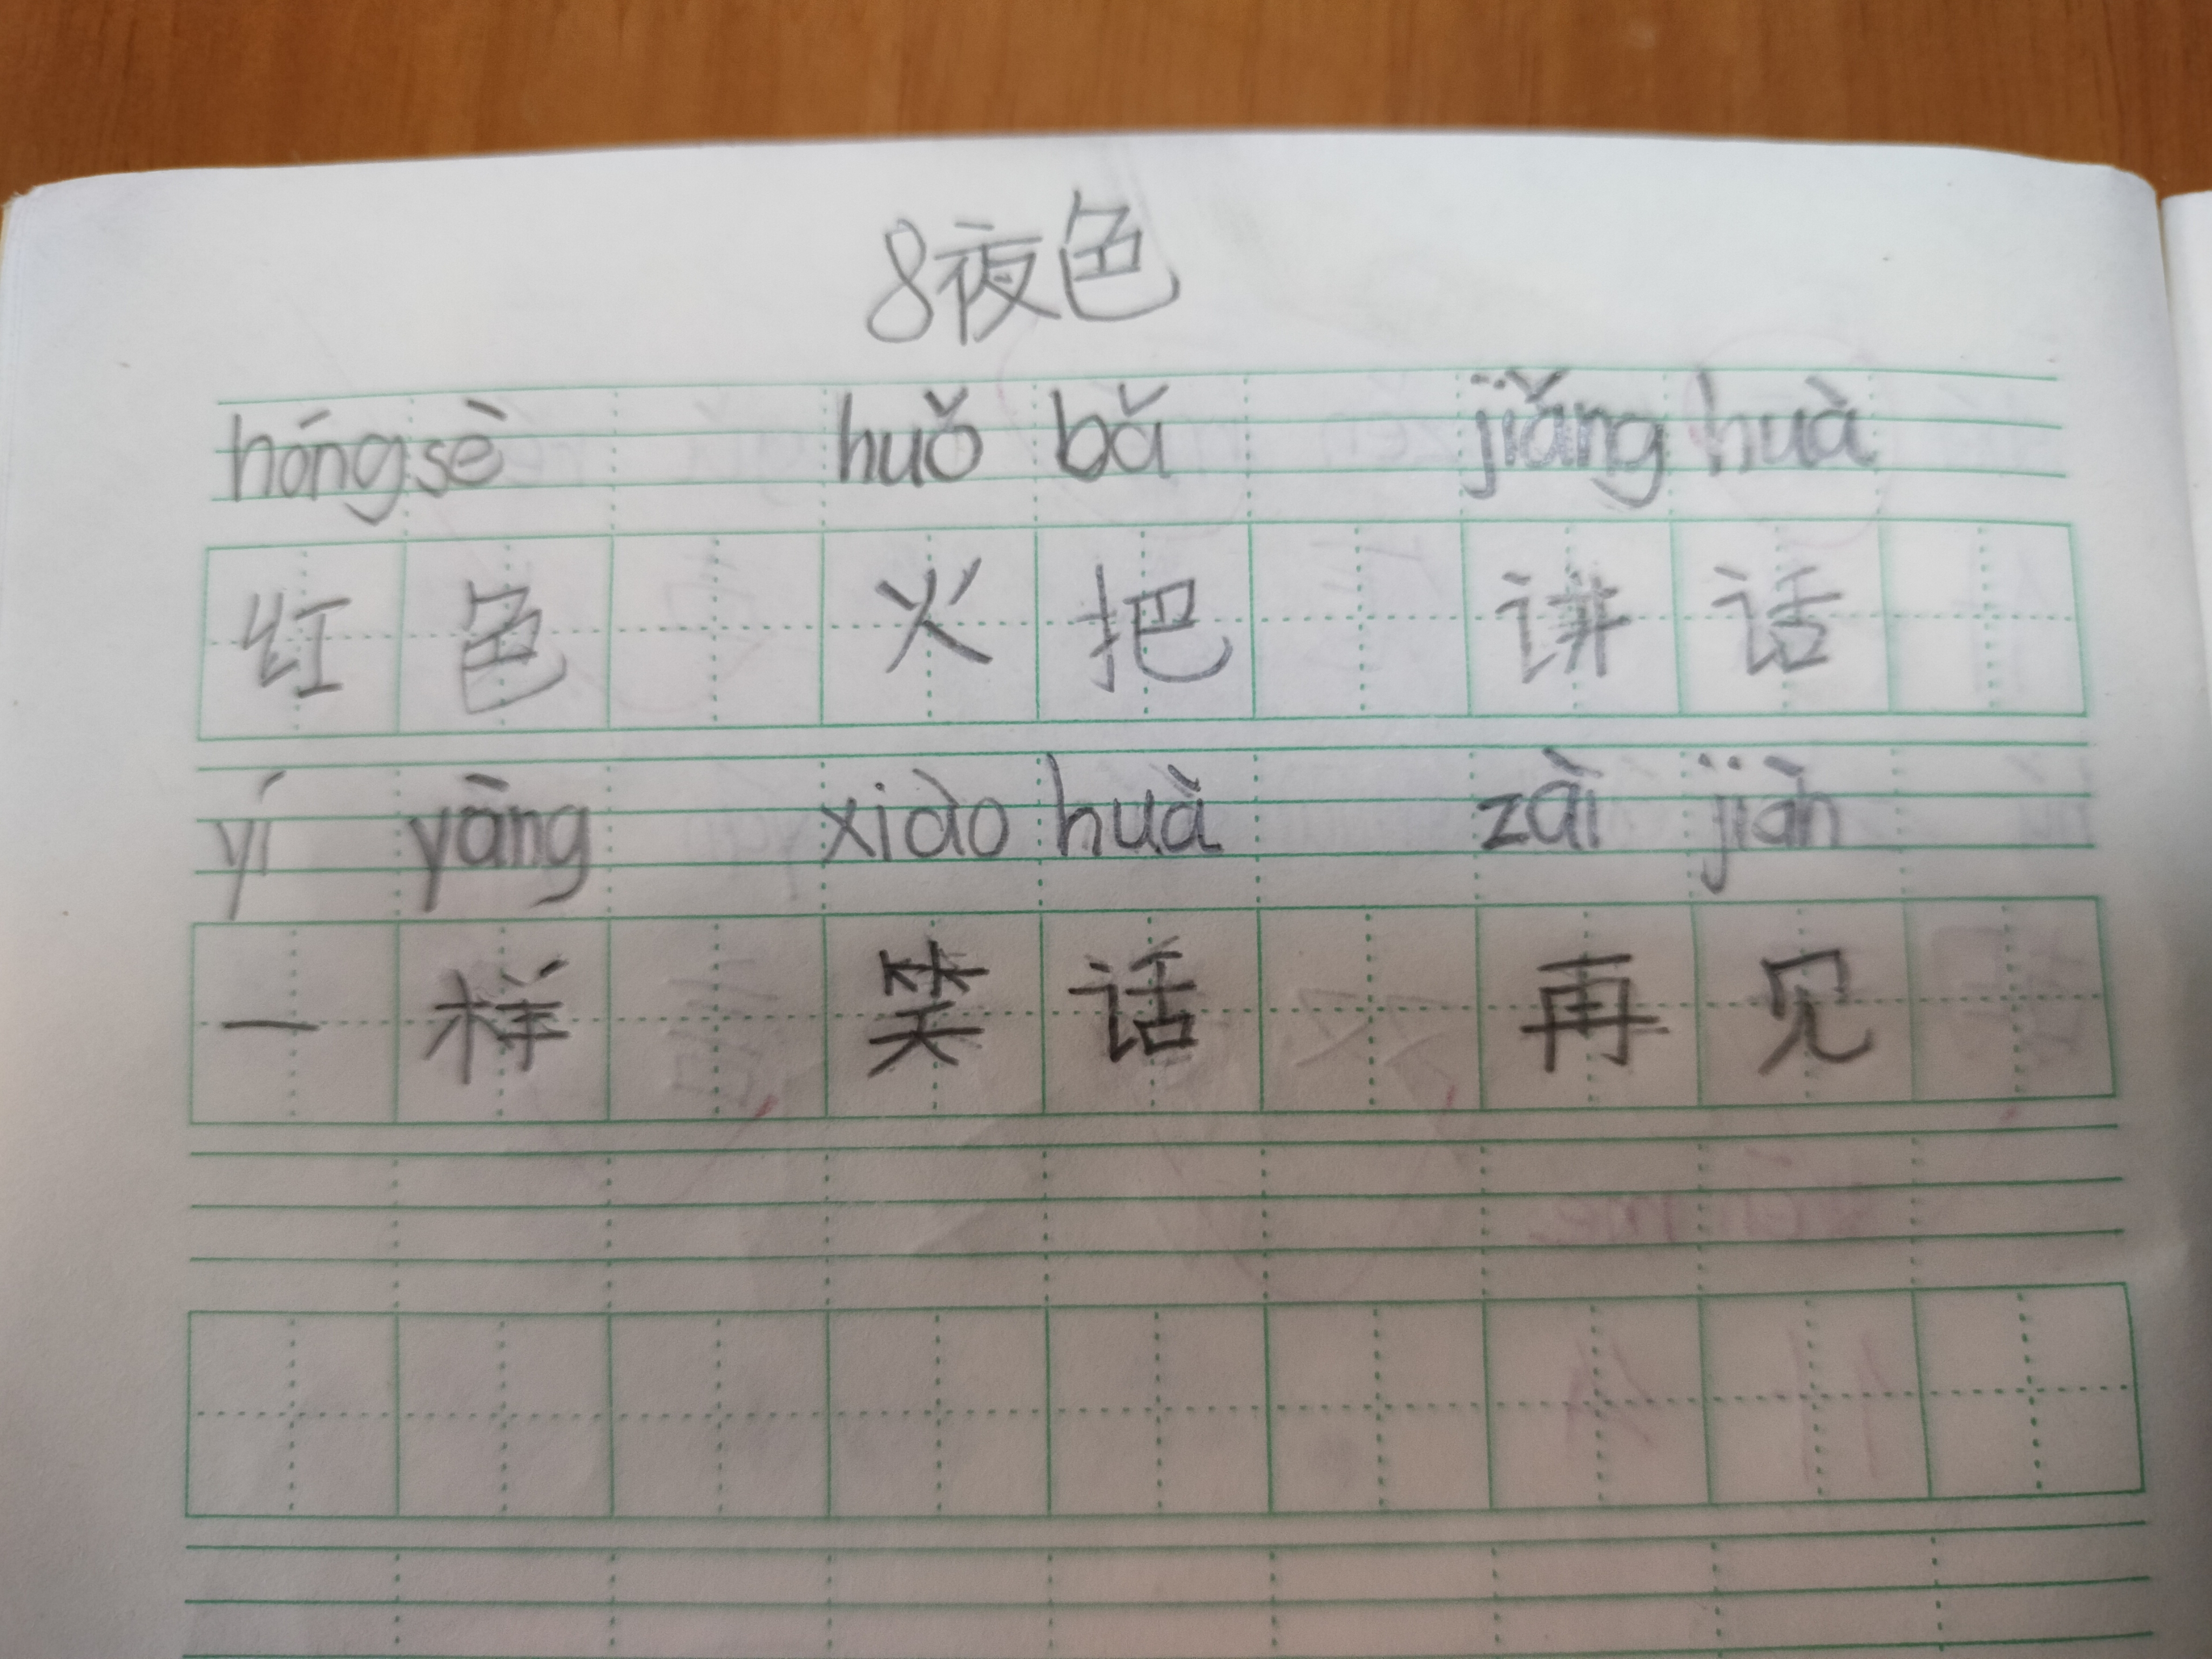 8夜色
hóng sè huǒ bǎ jiǎng huà
红色 火把 讲话
yí yàng xiào huà zài jiàn
一样 笑话 再见